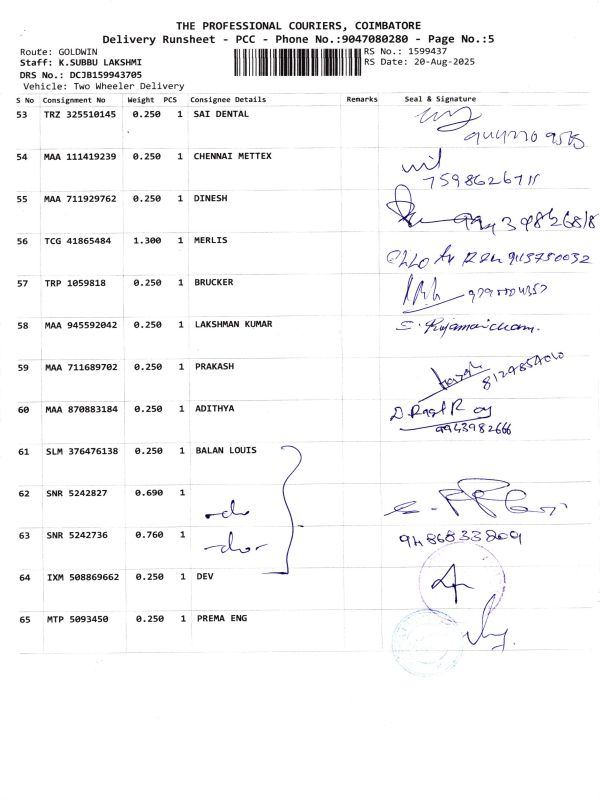 THE PROFESSIONAL COURIERS, COIMBATORE
Delivery Runsheet - PCC - Phone No.:9047080280 - Page No.:5
Route: GOLDWIN
RS No.: 1599437
Staff: K.SUBBU LAKSHMI
RS Date: 20-Aug-2025
DRS No.: DCJB159943705
Vehicle: Two Wheeler Delivery
S No Consignment No Weight PCS Consignee Details Remarks Seal & Signature
53 TRZ 325510145 0.250 1 SAI DENTAL
54 MAA 111419239 0.250 1 CHENNAI METTEX
55 MAA 711929762 0.250 1 DINESH
56 TCG 41865484 1.300 1 MERLIS
57 TRP 1059818 0.250 1 BRUCKER
58 MAA 945592042 0.250 1 LAKSHMAN KUMAR
59 MAA 711689702 0.250 1 PRAKASH
8129854010
60 MAA 870883184 0.250 1 ADITHYA
9943982666
61 SLM 376476138 0.250 1 BALAN LOUIS
62 SNR 5242827 0.690 1
63 SNR 5242736 0.760 1 9486833809
64 IXM 508869662 0.250 1 DEV
65 MTP 5093450 0.250 1 PREMA ENG